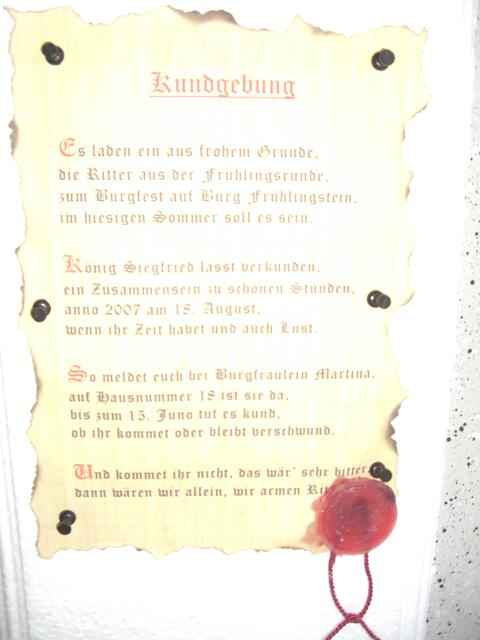 Kundgebung
Es laden ein aus frohem Grunde,
die Ritter aus der Frühlingsrunde,
zum Burgfest auf Burg Frühlingstein,
im hiesigen Sommer soll es sein.
König Siegfried lasst verkunden,
ein Zusammensein zu schonen Stunden,
anno 2007 am 18. August,
wenn ihr Zeit habet und auch Lust.
So meldet euch bei Burgfraulein Martina,
auf Hausnummer 18 ist sie da,
bis zum 15. Juno tut es kund,
ob ihr kommet oder bleibt verschwund.
Und kommet ihr nicht, das wär' sehr bitter
dann wären wir allein, wir armen